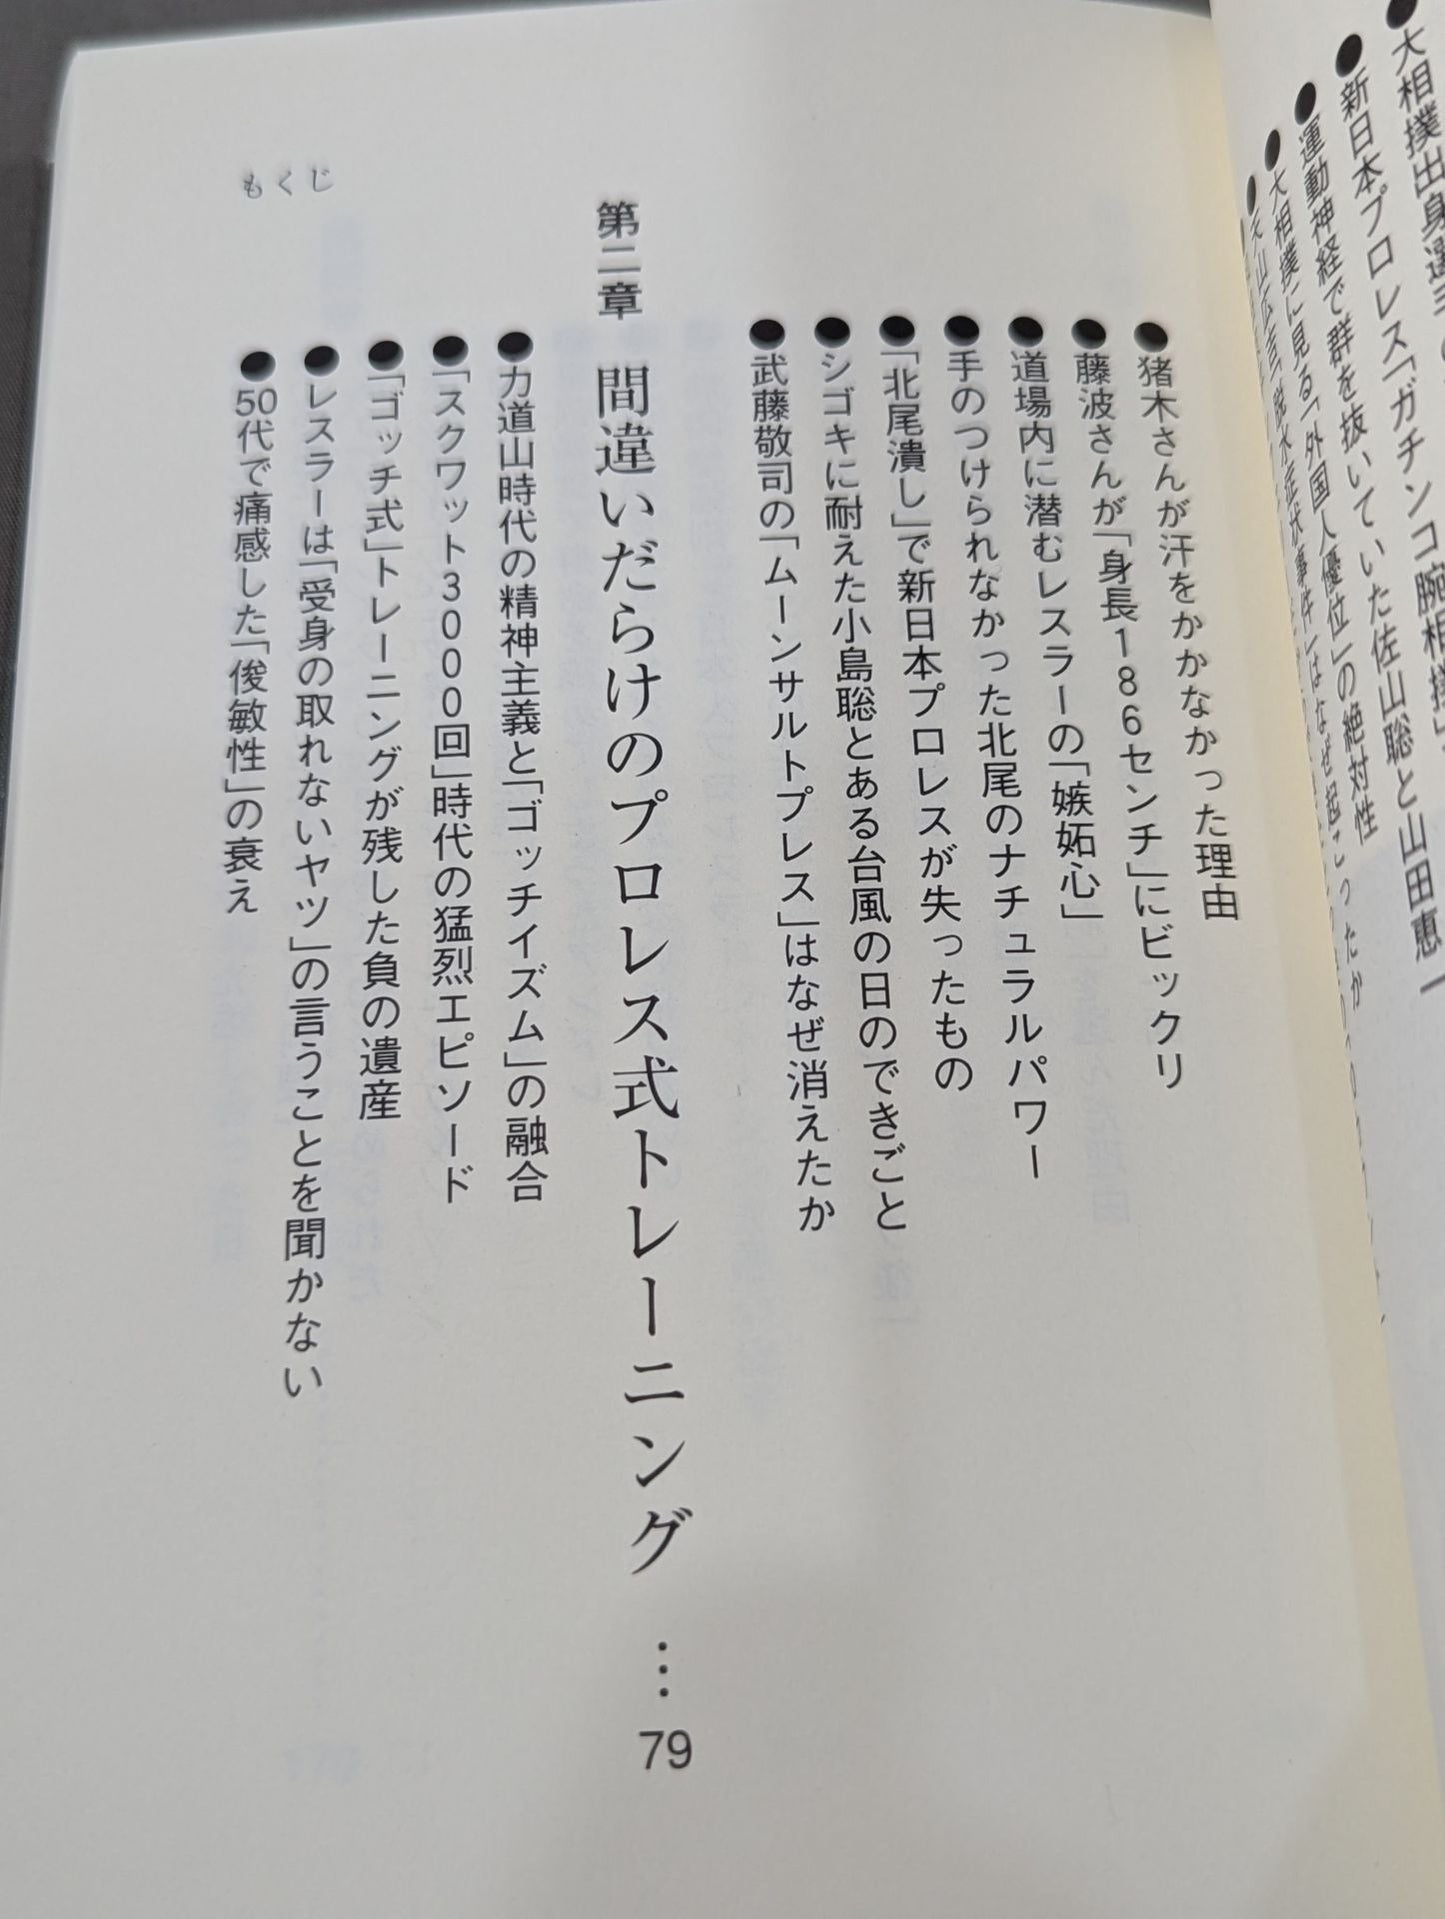 新日本プロレス「ガチンコ腕相撲」
運動神経で群を抜いていた佐山聡と山田恵一
大相撲に見る「外国人優位」の絶対性
●猪木さんが汗をかかなかった理由
●藤波さんが「身長186センチ」にビックリ
●道場内に潜むレスラーの「嫉妬心」
●手のつけられなかった北尾のナチュラルパワー
●「北尾潰し」で新日本プロレスが失ったもの
●シゴキに耐えた小島聡とある台風の日のできごと
●武藤敬司の「ムーンサルトプレス」はなぜ消えたか
第二章 間違いだらけのプロレス式トレーニング … 79
●力道山時代の精神主義と「ゴッチイズム」の融合
●「スクワット3000回」時代の猛烈エピソード
●「ゴッチ式」トレーニングが残した負の遺産
●レスラーは「受身の取れないヤツ」の言うことを聞かない
●50代で痛感した「俊敏性」の衰え
もくじ